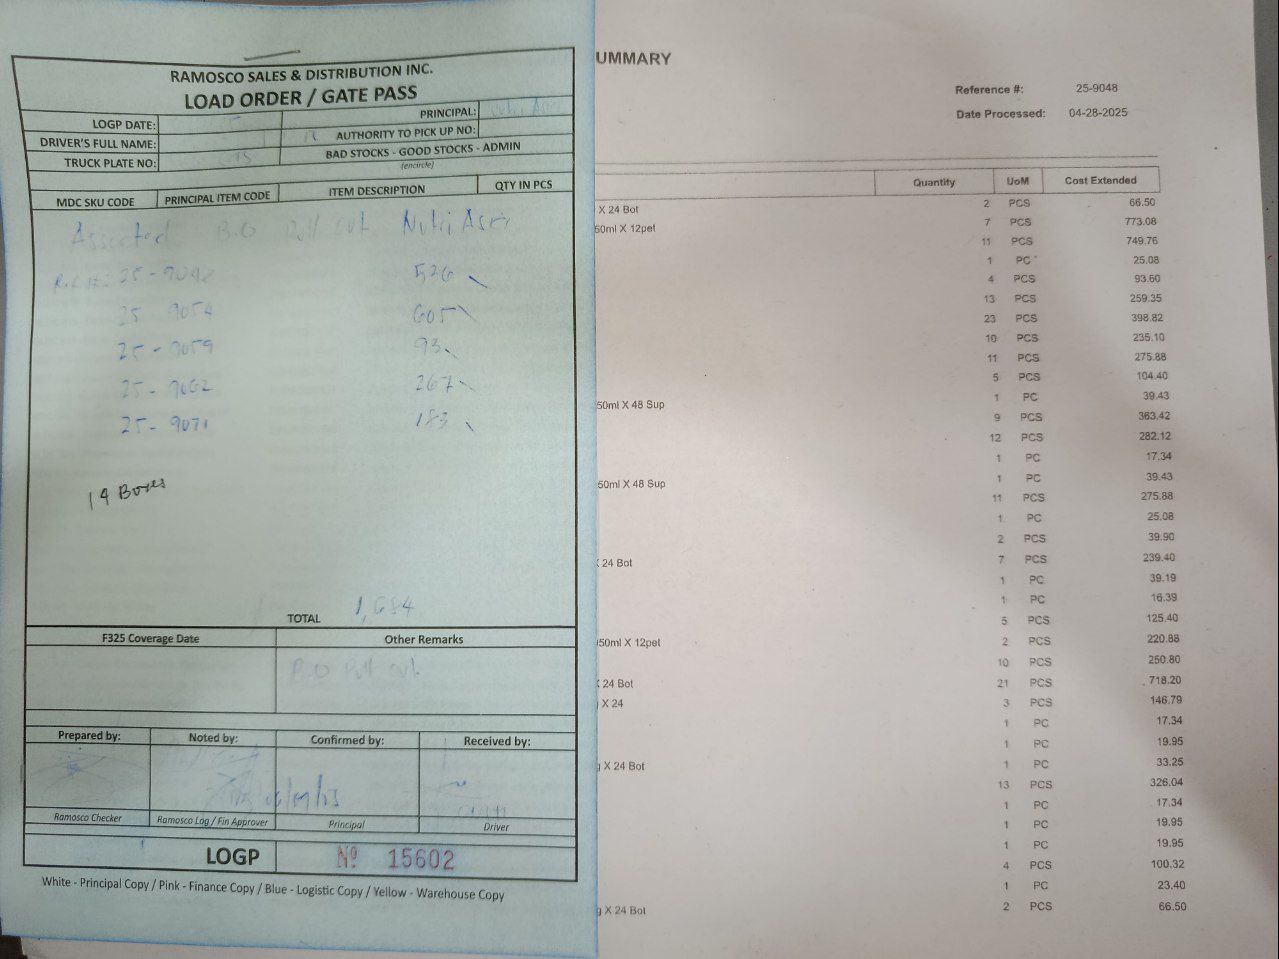 RAMOSCO SALES & DISTRIBUTION INC.
LOAD ORDER / GATE PASS
LOGP DATE:
PRINCIPAL:
DRIVER'S FULL NAME:
AUTHORITY TO PICK UP NO:
TRUCK PLATE NO:
BAD STOCKS - GOOD STOCKS - ADMIN
(encircle)
MDC SKU CODE PRINCIPAL ITEM CODE ITEM DESCRIPTION QTY IN PCS
Assorted B.O Pull out Nutri Asia
25-9048 526
25-9054 605
25-9059 93
25-9062 267
25-9071 183
19 Boxes
TOTAL 1,684
F325 Coverage Date Other Remarks
B.O Pull out
Prepared by: Noted by: Confirmed by: Received by:
Ramosco Checker Ramosco Log / Fin Approver Principal Driver
LOGP Nº 15602
White - Principal Copy / Pink - Finance Copy / Blue - Logistic Copy / Yellow - Warehouse Copy
UMMARY
Reference #: 25-9048
Date Processed: 04-28-2025
Quantity UoM Cost Extended
X 24 Bot 2 PCS 66.50
50ml X 12pet 7 PCS 773.08
11 PCS 749.76
1 PC 25.08
4 PCS 93.60
13 PCS 259.35
23 PCS 398.82
10 PCS 235.10
11 PCS 275.88
5 PCS 104.40
50ml X 48 Sup 1 PC 39.43
9 PCS 363.42
12 PCS 282.12
1 PC 17.34
50ml X 48 Sup 1 PC 39.43
11 PCS 275.88
1 PC 25.08
2 PCS 39.90
X 24 Bot 7 PCS 239.40
1 PC 39.19
1 PC 16.39
5 PCS 125.40
50ml X 12pet 2 PCS 220.88
10 PCS 250.80
X 24 Bot 21 PCS 718.20
X 24 3 PCS 146.79
1 PC 17.34
1 PC 19.95
g X 24 Bot 1 PC 33.25
13 PCS 326.04
1 PC 17.34
1 PC 19.95
1 PC 19.95
4 PCS 100.32
1 PC 23.40
g X 24 Bot 2 PCS 66.50